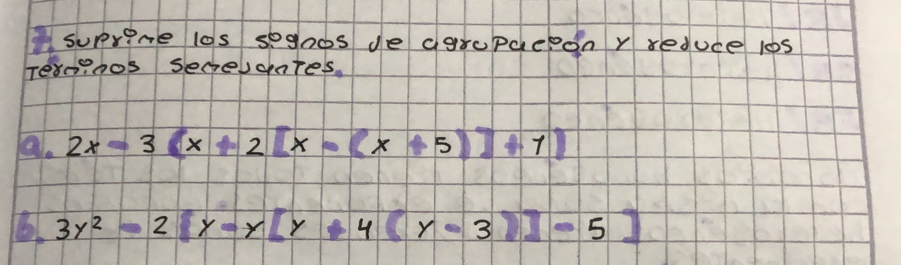 7. Suprime los signos de agrupación y reduce los
términos semejantes.
a. 2x - 3 {x + 2 [x - (x + 5)] + 1}
b. 3y² - 2 {y - y [y + 4 (y - 3)] - 5}